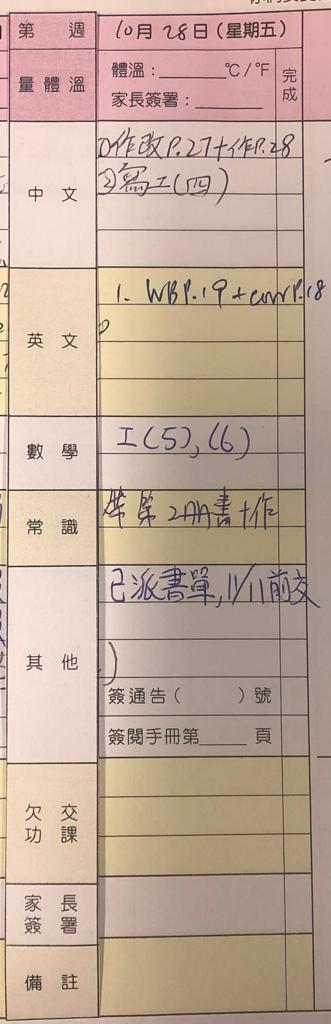 第 週 10月28日(星期五)
量體溫 體溫：______°C/°F 完成
家長簽署：______
中文 ①作改P.27+作P.28
②寫工(四)
英文 1. WB P.19 + corr P.18
數學 工(5),(6)
常識 帶第2AA書+作
其他 已派書單,11/11前交
簽通告( )號
簽閱手冊第____頁
欠交功課
家長簽署
備註